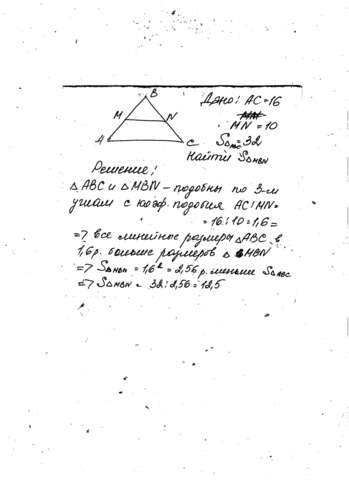 B
M N
A C
Дано: AC=16
MN=10
S△ABC=32
Найти S△MBN
Решение:
△ABC и △MBN - подобны по 3-м
углам с коэф. подобия AC:MN=
=16:10=1,6=
=> все линейные размеры △ABC в
1,6 р. больше размеров △ MBN
=> S△MBN = 1,6²=2,56 р. меньше S△ABC
=> S△MBN = 32:2,56=12,5